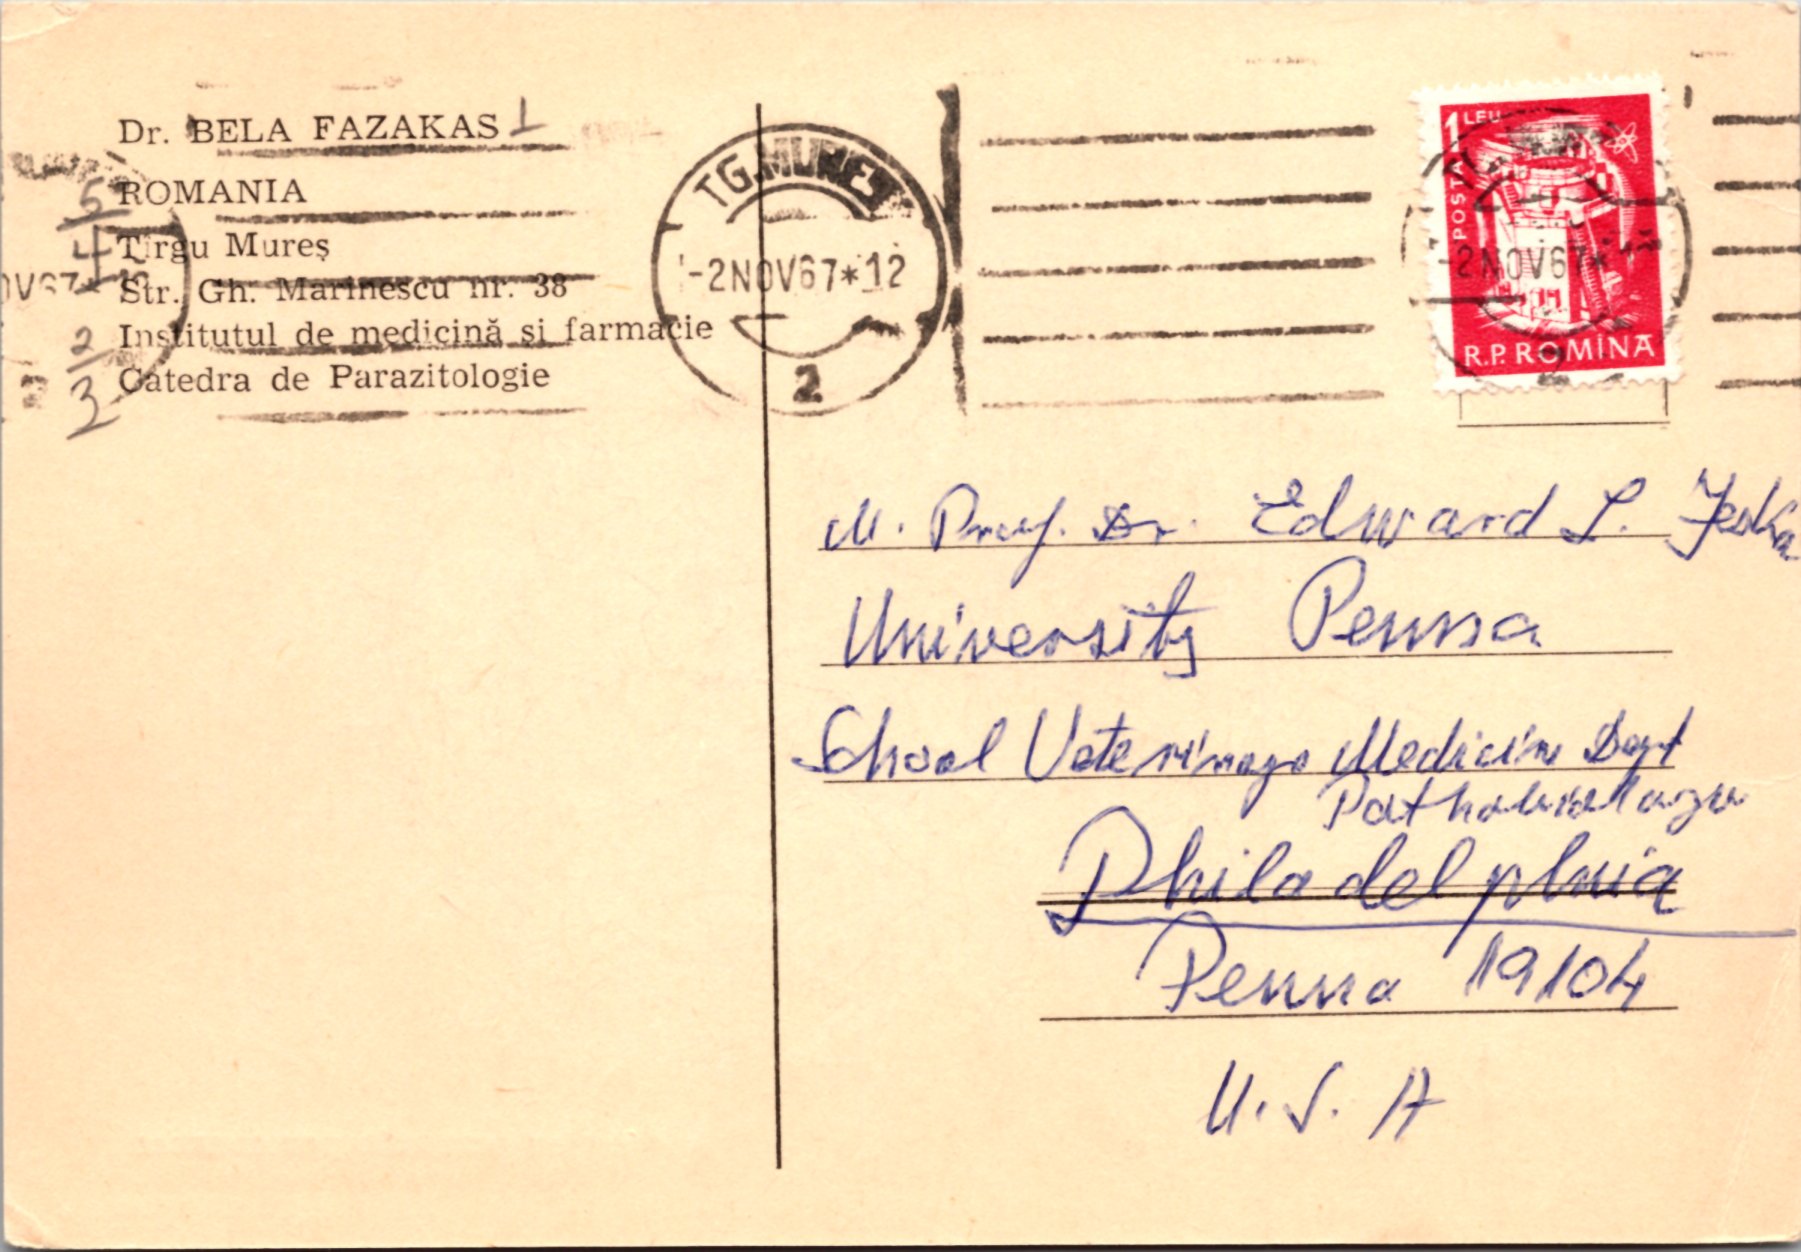 Dr. BELA FAZAKAS 1
ROMANIA
5
Tîrgu Mureș
4
Str. Gh. Marinescu nr. 38
Institutul de medicină si farmacie
2
Catedra de Parazitologie
3
OV67
TG. MUREȘ
-2NOV67*12
2
1 LEU
POSTA
R.P. ROMÎNA
-2NOV67*
2
M. Prof. Dr. Edward L. Jeska
University Penna
School Veterinary Medicine Dept
Philadelphia
Penna 19104
U. S. A